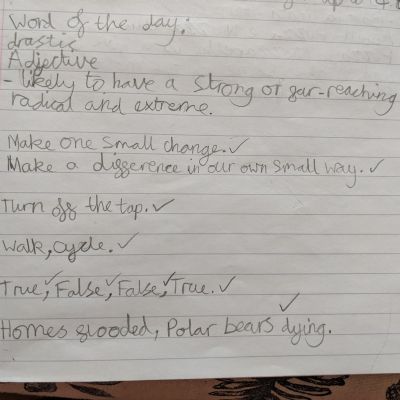 Word of the day:
drastis
Adjective
- likely to have a strong or far-reaching
radical and extreme.
Make one small change. ✓
Make a difference in our own small way. ✓
Turn off the tap. ✓
Walk, cycle. ✓
True, ✓ False, ✓ False, ✓ True. ✓
Homes flooded, Polar bears dying. ✓